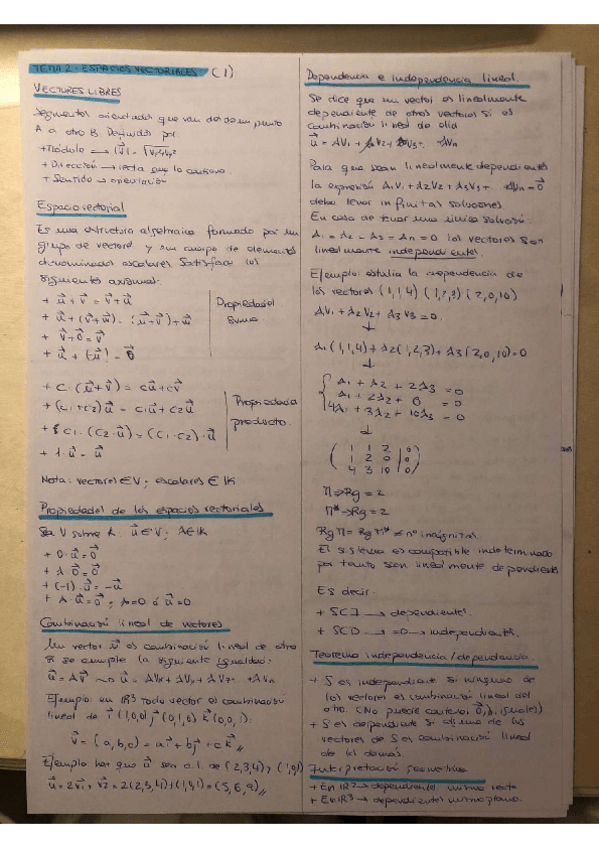 TEMA 2 - ESPACIOS VECTORIALES (1)
VECTORES LIBRES
Segmentos orientados que van desde un punto
A a otro B. Definidos por:
+ Módulo → |v̄| =
+ Dirección → recta que lo contiene
+ Sentido → orientación
Espacio vectorial
Es una estructura algebraica formado por un
grupo de vectores y un cuerpo de elementos
denominados escalares. Satisface los
siguientes axiomas:
+ u⃗ + v⃗ = v⃗ + u⃗
+ u⃗ + (v⃗ + w⃗) = (u⃗ + v⃗) + w⃗
+ v⃗ + 0⃗ = v⃗
+ u⃗ + (-u⃗) = 0⃗
Propiedades
suma
+ c · (u⃗ + v⃗) = cu⃗ + cv⃗
+ (c1 + c2) u⃗ = c1u⃗ + c2u⃗
+ c1 · (c2 · u⃗) = (c1 · c2) · u⃗
+ 1 · u⃗ = u⃗
Propiedades
producto.
Nota: vectores ∈ V ; escalares ∈ IK
Propiedades de los espacios vectoriales
Sea V sobre K. u⃗ ∈ V ; λ ∈ IK
+ 0 · u⃗ = 0⃗
+ λ · 0⃗ = 0⃗
+ (-1) · u⃗ = -u⃗
+ λ · u⃗ = 0⃗ ; λ = 0 ó u⃗ = 0
Combinación lineal de vectores
Un vector u⃗ es combinación lineal de otro
si se cumple la siguiente igualdad:
u⃗ = λv⃗ ∼ u⃗ = λv1 + λv2 + λv3 ... + λvn
Ejemplo: en IR3 todo vector es combinación
lineal de i⃗ (1,0,0) j⃗ (0,1,0) k⃗ (0,0,1):
v⃗ = (a, b, c) = a i⃗ + b j⃗ + c k⃗
Ejemplo: haz que u⃗ sea c.l. de (2,3,4) y (1,0,1)
u⃗ = 2v1 + v2 = 2(2,3,4) + (1,0,1) = (5,6,9)
Dependencia e independencia lineal.
Se dice que un vector es linealmente
dependiente de otros vectores si es
combinación lineal de ella
u⃗ = λv1 + λv2 + λv3 ... λvn
Para que sean linealmente dependientes
la expresión λ1v1 + λ2v2 + λ3v3 + ... λnvn = 0⃗
debe tener infinitas soluciones
En caso de tener una única solución:
λ1 = λ2 = λ3 = λn = 0 los vectores son
linealmente independientes.
Ejemplo: estudia la dependencia de
los vectores (1,1,4) (1,2,3) (2,0,10)
λ1v1 + λ2v2 + λ3v3 = 0.
↓
λ1(1,1,4) + λ2(1,2,3) + λ3(2,0,10) = 0
↓
λ1 + λ2 + 2λ3 = 0
λ1 + 2λ2 + 0 = 0
4λ1 + 3λ2 + 10λ3 = 0
↓
1 1 2 | 0
1 2 0 | 0
4 3 10 | 0
M ⇒ Rg = 2
M* ⇒ Rg = 2
Rg M = Rg M* ≠ nº incógnitas
El sistema es compatible indeterminado
por tanto son linealmente dependientes
Es decir:
+ SCI → dependientes.
+ SCD → = 0 → independientes.
Teorema independencia / dependencia.
+ S es independiente si ninguno de
los vectores es combinación lineal del
otro. (No puede contener 0⃗, iguales)
+ S es dependiente si alguno de los
vectores de S es combinación lineal
de los demás.
Interpretación geométrica
+ En IR2 → dependientes misma recta
+ En IR3 → dependientes mismo plano.